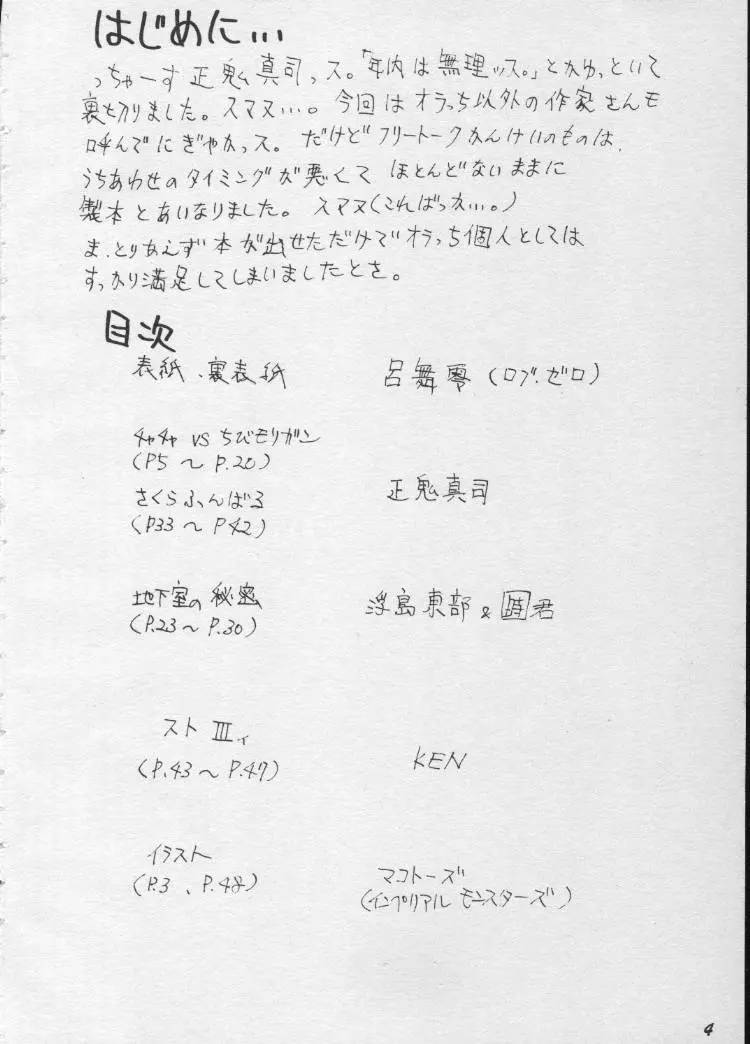 はじめに…
っちゃーす正鬼真司っス。「年内は無理ッス。」とかゆっといて
裏切りました。スマヌ…。今回はオラっち以外の作家さんモ
呼んでにぎやかっス。だけどフリートークかんけいのものは、
うちあわせのタイミングが悪くて ほとんどないままに
製本とあいなりました。スマヌ(こればっか…。)
ま、とりあえず本が出せただけでオラっち個人としては
すっかり満足してしまいましたとさ。
目次
表紙、裏表紙 呂舞零(ロブ・ゼロ)
チャチャ VS ちびモリガン
(P5 〜 P.20)
さくらふんばる
正鬼真司
(P33 〜 P42)
地下室の秘密 浮島東部 & 君
(P.23 〜 P.30)
スト III
(P.43 〜 P.47) KEN
イラスト
(P.3 、P.48) マコトーズ
(インペリアル モンスターズ)
4